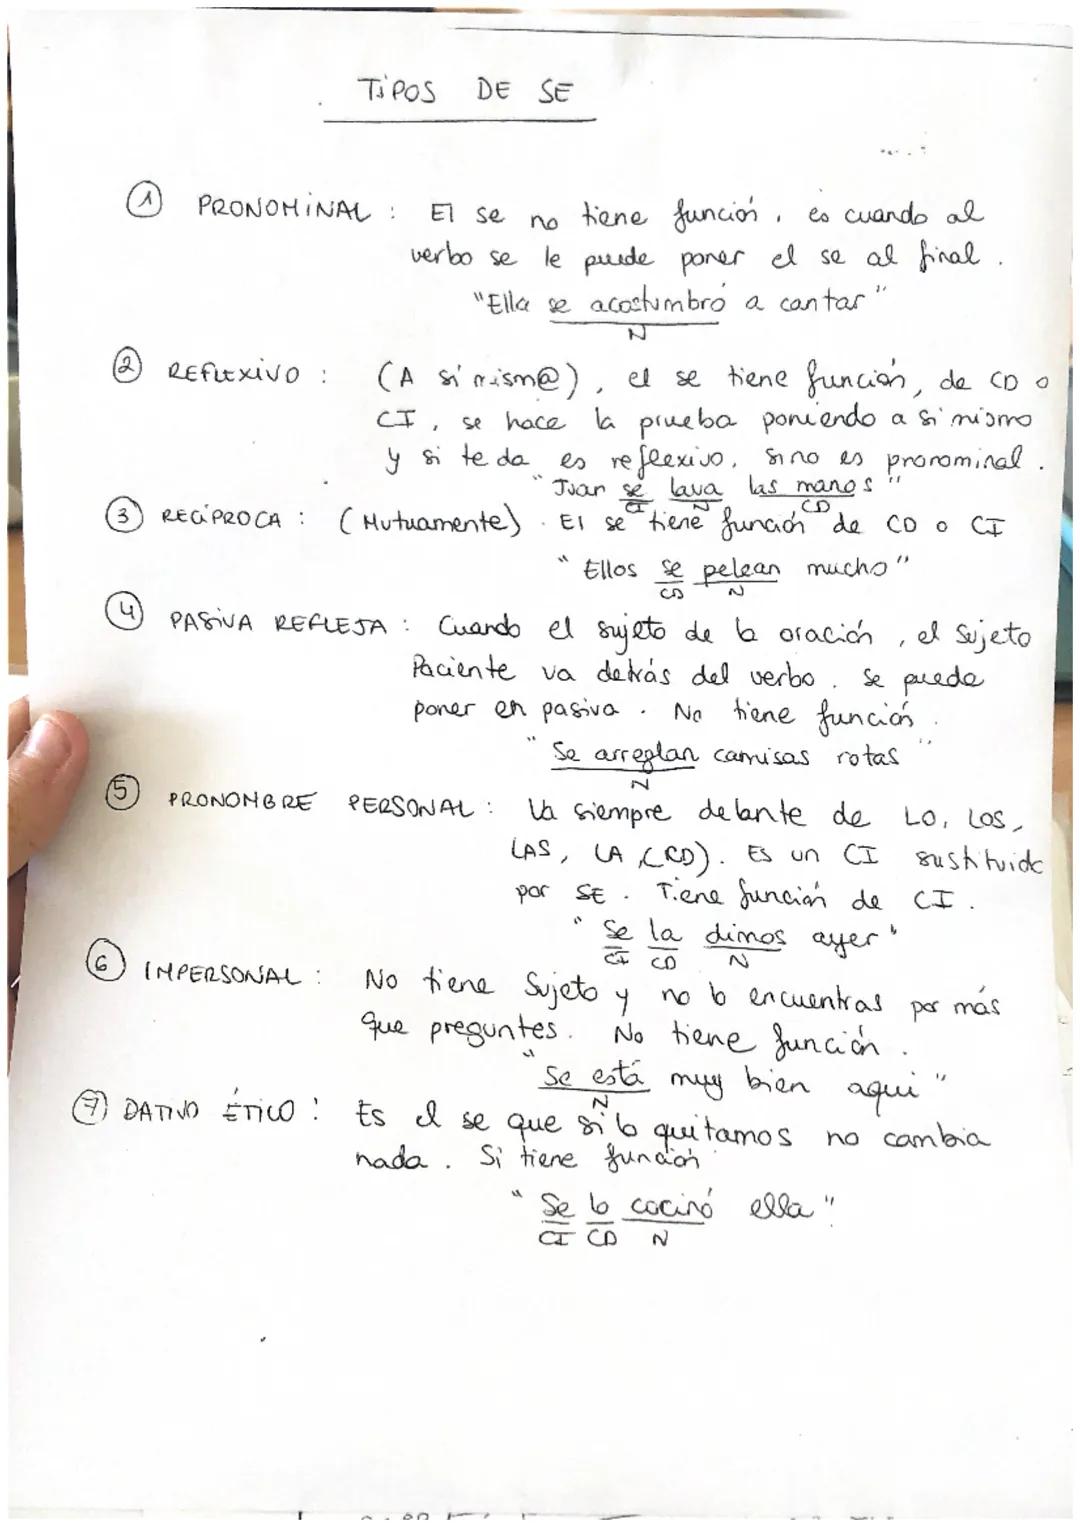 TIPOS DE SE
1 PRONOMINAL : El se no tiene función, es cuando al
verbo se le puede poner el se al final.
"Ella se acostumbró a cantar"
N
2 REFLEXIVO : (A sí mism@), el se tiene función, de CD o
CI, se hace la prueba poniendo a si mismo
y si te da es reflexivo, sino es pronominal.
"Juan se lava las manos"
CI N CD
3 RECÍPROCA : (Mutuamente). El se tiene función de CD o CI
"Ellos se pelean mucho"
CD N
4 PASIVA REFLEJA : Cuando el sujeto de la oración, el Sujeto
Paciente va detrás del verbo. Se puede
poner en pasiva. No tiene función.
"Se arreglan camisas rotas"
N
5 PRONOMBRE PERSONAL : Va siempre delante de LO, LOS,
LAS, LA (CD). Es un CI sustituido
por SE. Tiene función de CI.
"Se la dimos ayer"
CI CD N
6 IMPERSONAL : No tiene Sujeto y no lo encuentras por más
que preguntes. No tiene función.
"Se está muy bien aqui"
N
7 DATIVO ÉTICO : Es el se que si lo quitamos no cambia
nada. Si tiene función
"Se lo cocinó ella"
CI CD N